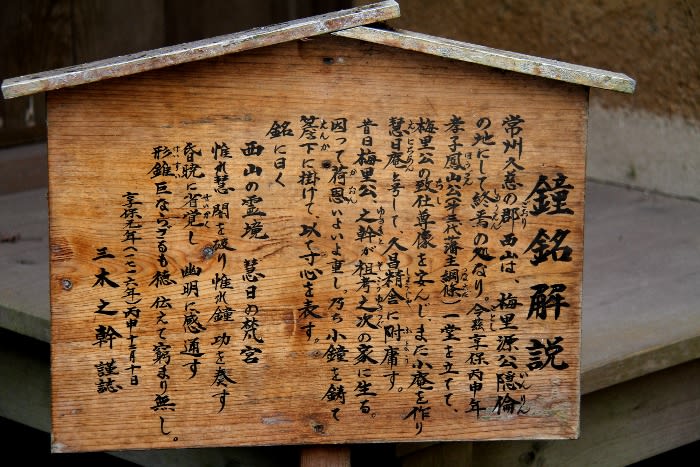 鐘銘解説
常州久慈の郡西山は、梅里源公隠倫
の地にして終焉の処なり。今玆享保丙申年
孝子鳳山公(第三代藩主綱條)一堂を立てて、
梅里公の致仕尊像を安んじ、また小庵を作り
慧日庵と号して、久昌精舎に附庸す。
昔日梅里公、之幹が祖考之次の家に生る。
因って荷恩いよいよ重し。乃ち小鐘を鋳て
簷下に掛けて、以て寸心を表す。
銘に曰く
西山の霊境 慧日の梵宮
惟れ慧 闇を破り惟れ鐘 功を奏す
昏暁に省覚し 幽明に感通す
形錐巨ならざるも徳 伝えて窮まり無し。
享保元年(一七一六年)丙申十月十日
三木之幹 謹誌